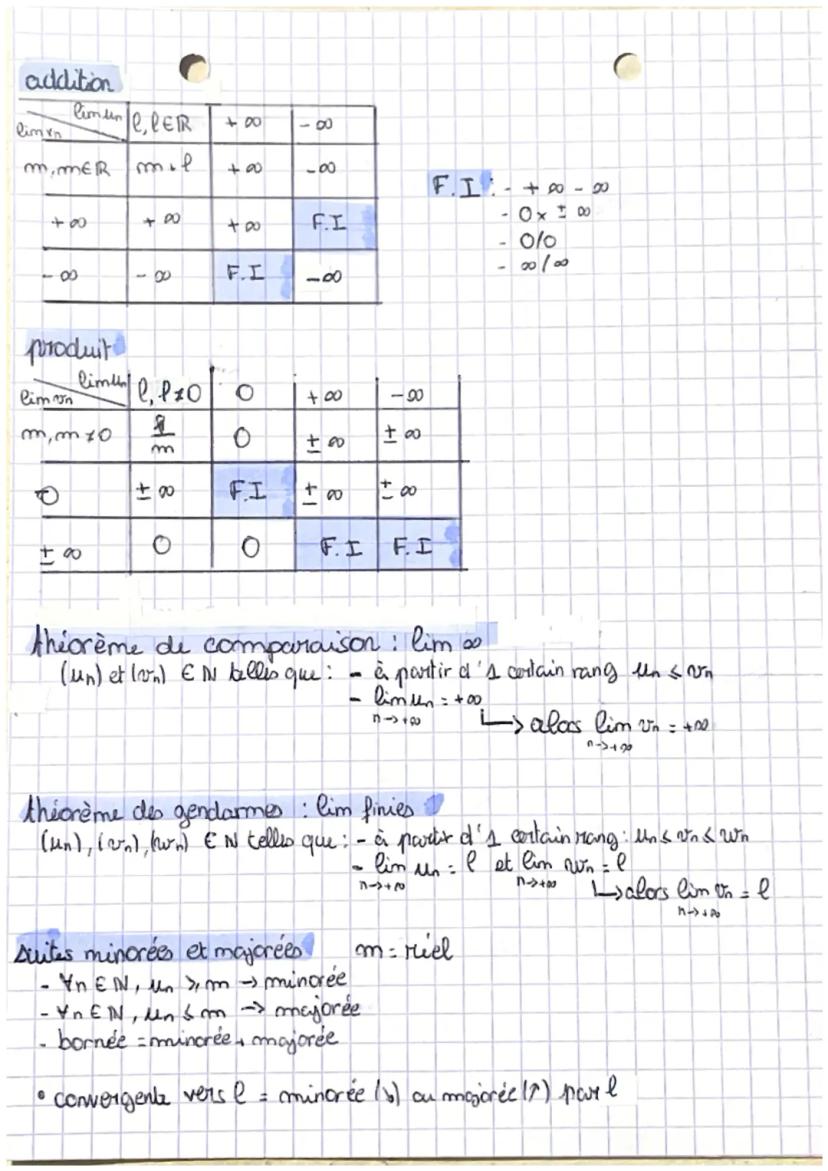 addition
lim un | l, l∈ℝ | +∞ | -∞
lim vn
m, m∈ℝ | m+l | +∞ | -∞
+∞ | +∞ | +∞ | F.I
-∞ | -∞ | F.I | -∞
F.I : - +∞ - ∞
- 0 × ± ∞
- 0/0
- ∞/∞
produit
lim un | l, l≠0 | 0 | +∞ | -∞
lim vn
m, m≠0 | l/m | 0 | ±∞ | ±∞
0 | ±∞ | F.I | ±∞ | ±∞
±∞ | 0 | 0 | F.I | F.I
théorème de comparaison : lim ∞
(un) et (vn) ∈ ℕ telles que : - à partir d'1 certain rang un ≤ vn
- lim un = +∞
n→+∞
↳ alors lim vn = +∞
n→+∞
théorème des gendarmes : lim finies
(un), (vn), (wn) ∈ ℕ telles que : - à partir d'1 certain rang : un ≤ vn ≤ wn
- lim un = l et lim wn = l
n→+∞ n→+∞
↳ alors lim vn = l
n→+∞
suites minorées et majorées m = réel
- ∀n ∈ ℕ, un ≥ m → minorée
- ∀n ∈ ℕ, un ≤ m → majorée
- bornée = minorée + majorée
• convergente vers l = minorée (↘) ou majorée (↑) par l